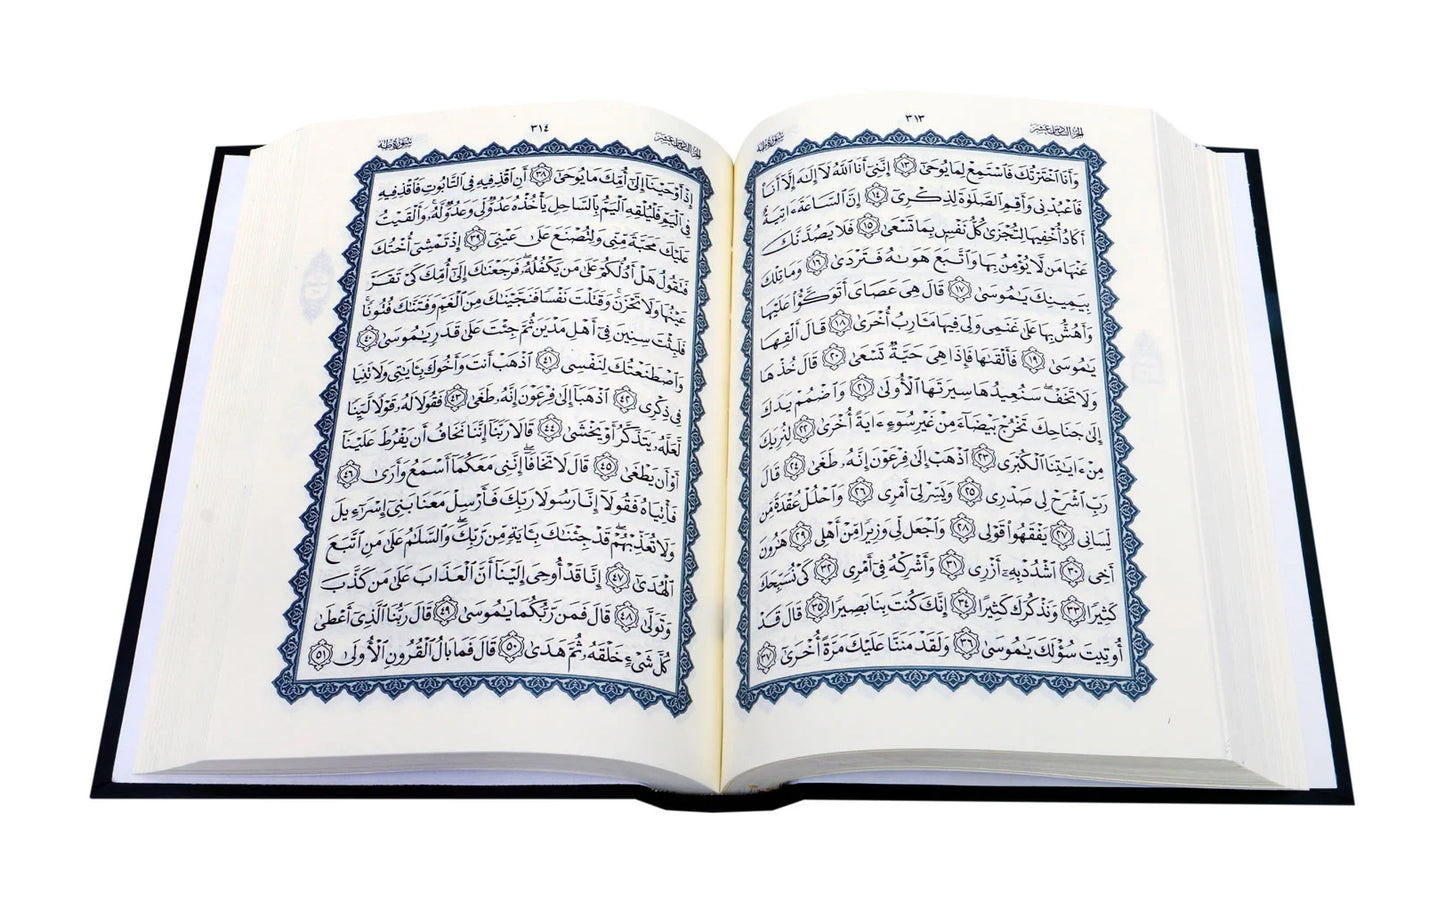 سُورَةُ طه
٣١٣
الجزء السادس عشر
وَأَنَا ٱخْتَرْتُكَ فَٱسْتَمِعْ لِمَا يُوحَىٰٓ ١٣ إِنَّنِىٓ أَنَا ٱللَّهُ لَآ إِلَٰهَ إِلَّآ أَنَا۠
فَٱعْبُدْنِى وَأَقِمِ ٱلصَّلَوٰةَ لِذِكْرِىٓ ١٤ إِنَّ ٱلسَّاعَةَ ءَاتِيَةٌ
أَكَادُ أُخْفِيهَا لِتُجْزَىٰ كُلُّ نَفْسٍۭ بِمَا تَسْعَىٰ ١٥ فَلَا يَصُدَّنَّكَ
عَنْهَا مَن لَّا يُؤْمِنُ بِهَا وَٱتَّبَعَ هَوَىٰهُ فَتَرْدَىٰ ١٦ وَمَا تِلْكَ
بِيَمِينِكَ يَٰمُوسَىٰ ١٧ قَالَ هِىَ عَصَاىَ أَتَوَكَّؤُا۟ عَلَيْهَا
وَأَهُشُّ بِهَا عَلَىٰ غَنَمِى وَلِىَ فِيهَا مَـَٔارِبُ أُخْرَىٰ ١٨ قَالَ أَلْقِهَا
يَٰمُوسَىٰ ١٩ فَأَلْقَىٰهَا فَإِذَا هِىَ حَيَّةٌ تَسْعَىٰ ٢٠ قَالَ خُذْهَا
وَلَا تَخَفْ ۖ سَنُعِيدُهَا سِيرَتَهَا ٱلْأُولَىٰ ٢١ وَٱضْمُمْ يَدَكَ
إِلَىٰ جَنَاحِكَ تَخْرُجْ بَيْضَآءَ مِنْ غَيْرِ سُوٓءٍ ءَايَةً أُخْرَىٰ ٢٢ لِنُرِيَكَ
مِنْ ءَايَٰتِنَا ٱلْكُبْرَى ٢٣ ٱذْهَبْ إِلَىٰ فِرْعَوْنَ إِنَّهُۥ طَغَىٰ ٢٤ قَالَ
رَبِّ ٱشْرَحْ لِى صَدْرِى ٢٥ وَيَسِّرْ لِىٓ أَمْرِى ٢٦ وَٱحْلُلْ عُقْدَةً مِّن
لِّسَانِى ٢٧ يَفْقَهُوا۟ قَوْلِى ٢٨ وَٱجْعَل لِّى وَزِيرًا مِّنْ أَهْلِى ٢٩ هَٰرُونَ
أَخِى ٣٠ ٱشْدُدْ بِهِۦٓ أَزْرِى ٣١ وَأَشْرِكْهُ فِىٓ أَمْرِى ٣٢ كَىْ نُسَبِّحَكَ
كَثِيرًا ٣٣ وَنَذْكُرَكَ كَثِيرًا ٣٤ إِنَّكَ كُنتَ بِنَا بَصِيرًا ٣٥ قَالَ قَدْ
أُوتِيتَ سُؤْلَكَ يَٰمُوسَىٰ ٣٦ وَلَقَدْ مَنَنَّا عَلَيْكَ مَرَّةً أُخْرَىٰٓ ٣٧
سُورَةُ طه
٣١٤
الجزء السادس عشر
إِذْ أَوْحَيْنَآ إِلَىٰٓ أُمِّكَ مَا يُوحَىٰٓ ٣٨ أَنِ ٱقْذِفِيهِ فِى ٱلتَّابُوتِ فَٱقْذِفِيهِ
فِى ٱلْيَمِّ فَلْيُلْقِهِ ٱلْيَمُّ بِٱلسَّاحِلِ يَأْخُذْهُ عَدُوٌّ لِّى وَعَدُوٌّ لَّهُۥ ۚ وَأَلْقَيْتُ
عَلَيْكَ مَحَبَّةً مِّنِّى وَلِتُصْنَعَ عَلَىٰ عَيْنِىٓ ٣٩ إِذْ تَمْشِىٓ أُخْتُكَ
فَتَقُولُ هَلْ أَدُلُّكُمْ عَلَىٰ مَن يَكْفُلُهُۥ ۖ فَرَجَعْنَٰكَ إِلَىٰٓ أُمِّكَ كَىْ تَقَرَّ
عَيْنُهَا وَلَا تَحْزَنَ ۚ وَقَتَلْتَ نَفْسًا فَنَجَّيْنَٰكَ مِنَ ٱلْغَمِّ وَفَتَنَّٰكَ فُتُونًا ۚ
فَلَبِثْتَ سِنِينَ فِىٓ أَهْلِ مَدْيَنَ ثُمَّ جِئْتَ عَلَىٰ قَدَرٍ يَٰمُوسَىٰ ٤٠
وَٱصْطَنَعْتُكَ لِنَفْسِى ٤١ ٱذْهَبْ أَنتَ وَأَخُوكَ بِـَٔايَٰتِى وَلَا تَنِيَا
فِى ذِكْرِى ٤٢ ٱذْهَبَآ إِلَىٰ فِرْعَوْنَ إِنَّهُۥ طَغَىٰ ٤٣ فَقُولَا لَهُۥ قَوْلًا لَّيِّنًا
لَّعَلَّهُۥ يَتَذَكَّرُ أَوْ يَخْشَىٰ ٤٤ قَالَا رَبَّنَآ إِنَّنَا نَخَافُ أَن يَفْرُطَ عَلَيْنَآ
أَوْ أَن يَطْغَىٰ ٤٥ قَالَ لَا تَخَافَآ ۖ إِنَّنِى مَعَكُمَآ أَسْمَعُ وَأَرَىٰ ٤٦
فَأْتِيَاهُ فَقُولَآ إِنَّا رَسُولَا رَبِّكَ فَأَرْسِلْ مَعَنَا بَنِىٓ إِسْرَٰٓءِيلَ
وَلَا تُعَذِّبْهُمْ ۖ قَدْ جِئْنَٰكَ بِـَٔايَةٍ مِّن رَّبِّكَ ۖ وَٱلسَّلَٰمُ عَلَىٰ مَنِ ٱتَّبَعَ
ٱلْهُدَىٰٓ ٤٧ إِنَّا قَدْ أُوحِىَ إِلَيْنَآ أَنَّ ٱلْعَذَابَ عَلَىٰ مَن كَذَّبَ
وَتَوَلَّىٰ ٤٨ قَالَ فَمَن رَّبُّكُمَا يَٰمُوسَىٰ ٤٩ قَالَ رَبُّنَا ٱلَّذِىٓ أَعْطَىٰ
كُلَّ شَىْءٍ خَلْقَهُۥ ثُمَّ هَدَىٰ ٥٠ قَالَ فَمَا بَالُ ٱلْقُرُونِ ٱلْأُولَىٰ ٥١